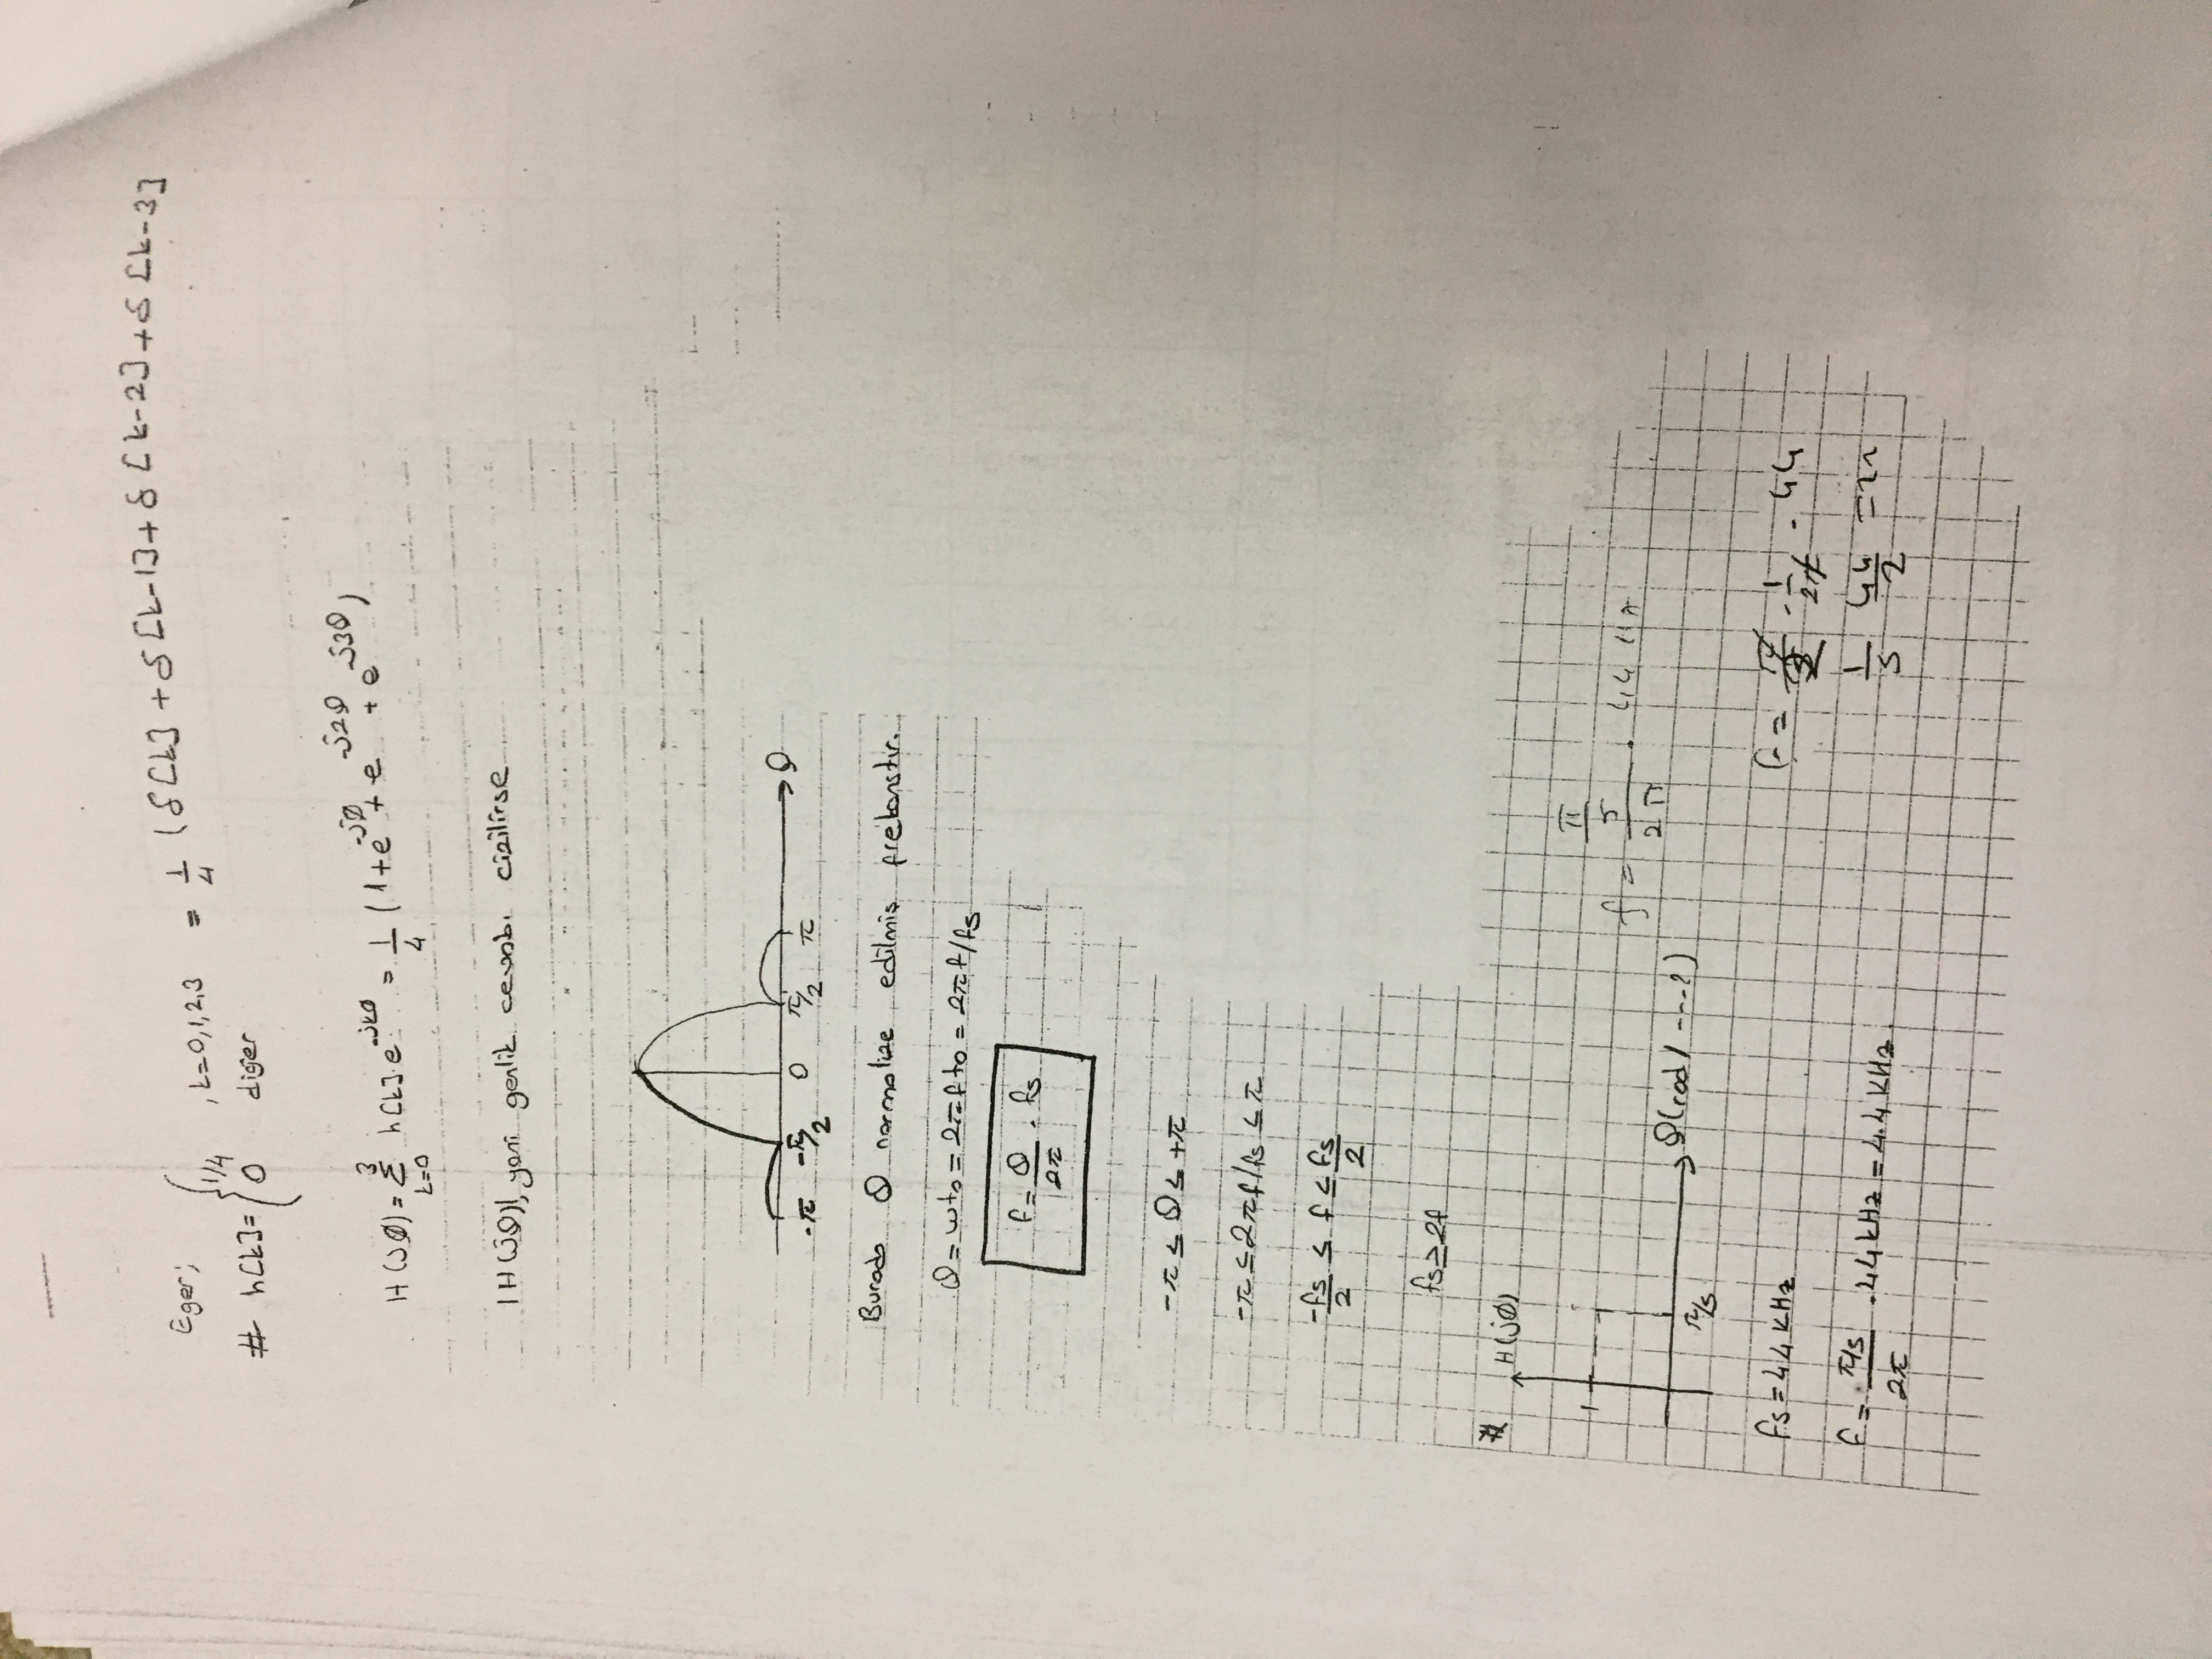 Eger;
# h[k]= { 1/4 , k=0,1,2,3 = 1/4 (δ[k] + δ[k-1] + δ[k-2] + δ[k-3]
0 diğer
H(jθ) = Σ_{k=0}^{3} h[k].e^{-jkθ} = 1/4 (1+e^{-jθ} + e^{-j2θ} + e^{-j3θ})
|H(jθ)|, yani genlik cevabı cizilirse
-π -π/2 0 π/2 π θ
Burada θ normalize edilmiş frekanstır.
θ = wto = 2πfto = 2πf/fs
f = θ/2π . fs
-π ≤ θ ≤ +π
-π ≤ 2πf/fs ≤ π
-fs/2 ≤ f ≤ fs/2
fs ≥ 2f
# H(jθ)
1
π/5 θ(rad/ ---.?)
f = (π/5)/(2π) . 44
fs = 44 kHz
f = (π/5)/(2π) . 44 kHz = 4.4 KHz
f = . 1/2π . 44
1/5 44/2 = 22